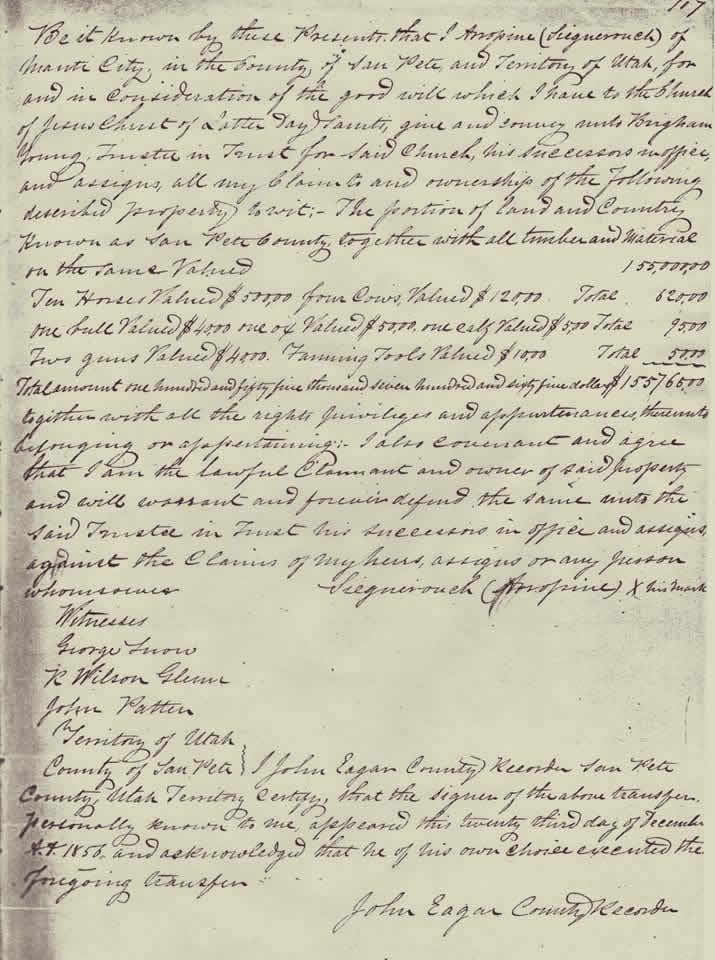 107
Be it Known by these Presents, that I Arropine (Siegnerouch) of
Manti City, in the County of San Pete, and Territory of Utah, for
and in Consideration of the good will which I have to the Church
of Jesus Christ of Latter Day Saints, give and convey unto Brigham
Young, Trustee in Trust for said Church, his successors in office,
and assigns, all my Claim to and ownership of the following
described property, to wit;- The portion of land and Country
Known as San Pete County, together with all timber and Material
on the same Valued 155,000,00
Ten Horses Valued $500,00 four Cows, Valued $120,00. Total 620,00
one bull Valued $40,00 one ox Valued $50,00. one calf Valued $5,00 Total 95,00
Two guns Valued $40,00. Farming Tools Valued $10,00 Total 50,00
Total amount one hundred and fifty five thousand seven hundred and sixty five dollars $155765,00
together with all the rights privileges and appurtenances, thereunto
belonging or appertaining:- I also covenant and agree
that I am the lawful Claimant and owner of said property
and will warrant and forever defend the same unto the
said Trustee in Trust his successors in office and assigns,
against the Claims of my heirs, assigns or any person
whomsoever Siegnerouch (Arropine) X his mark
Witnesses
George Snow
R Wilson Glenn
John Patten
Territory of Utah
County of San Pete } I John Eagar County Recorder San Pete
County, Utah Territory certify, that the signer of the above transfer,
personally known to me, appeared this twenty third day of December
1856, and acknowledged that he of his own choice executed the
foregoing transfer
John Eagar County Recorder